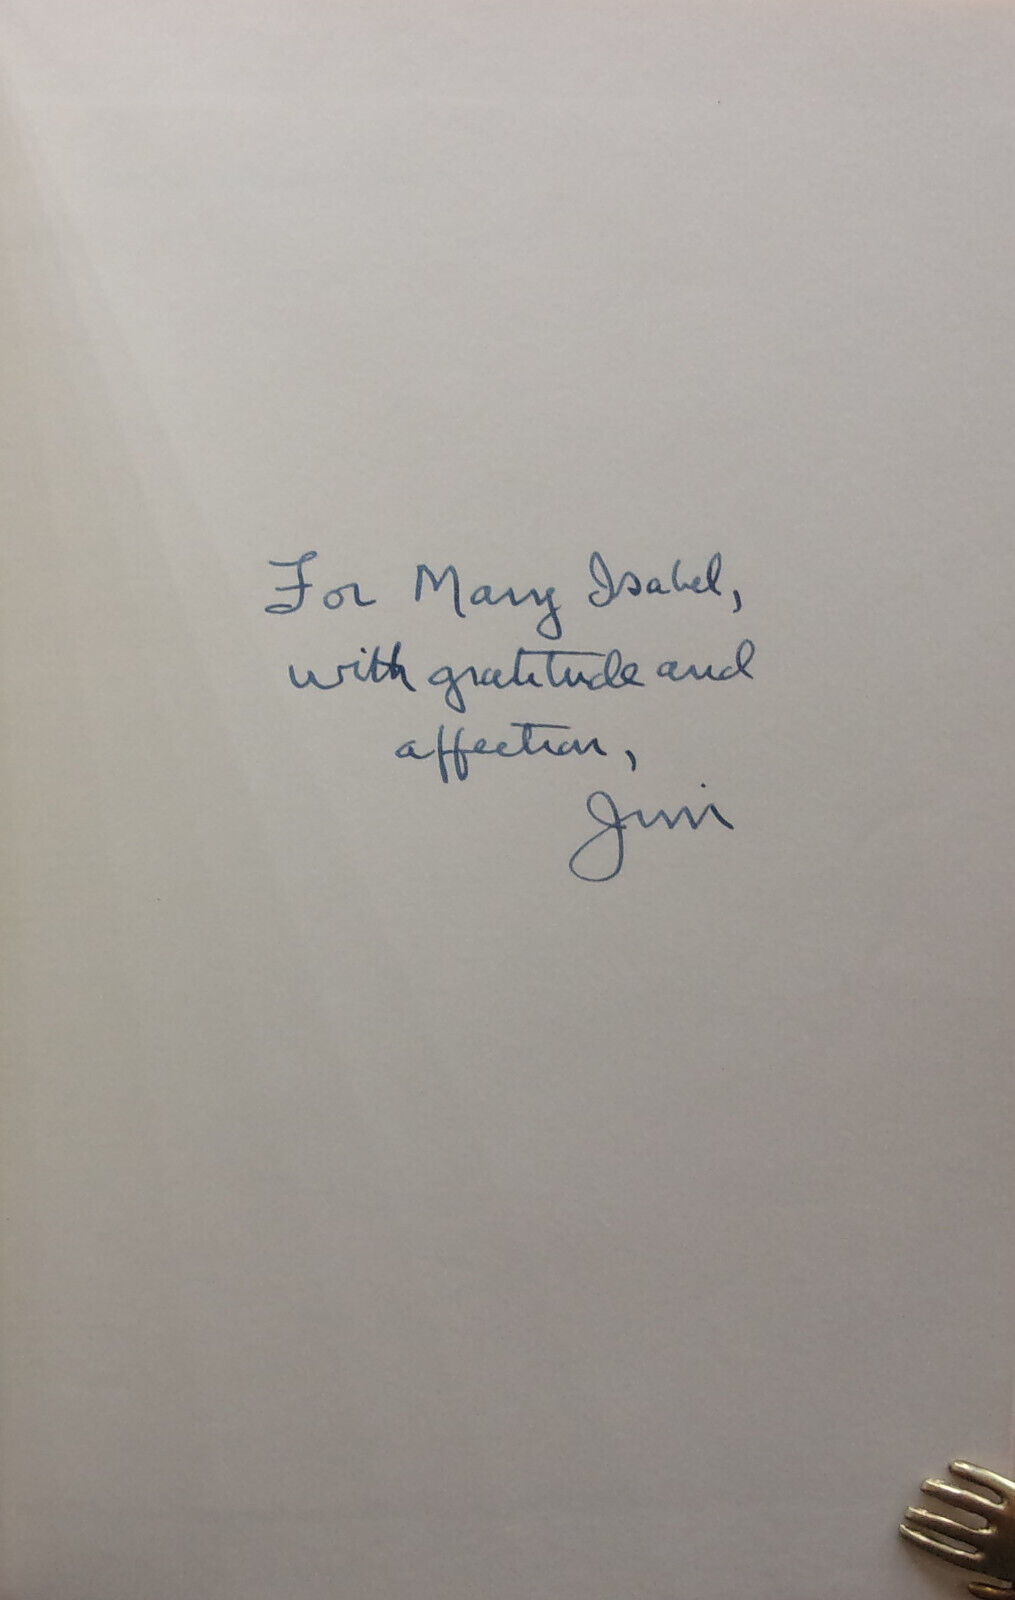 For Mary Isabel,
with gratitude and
affection,
Jim